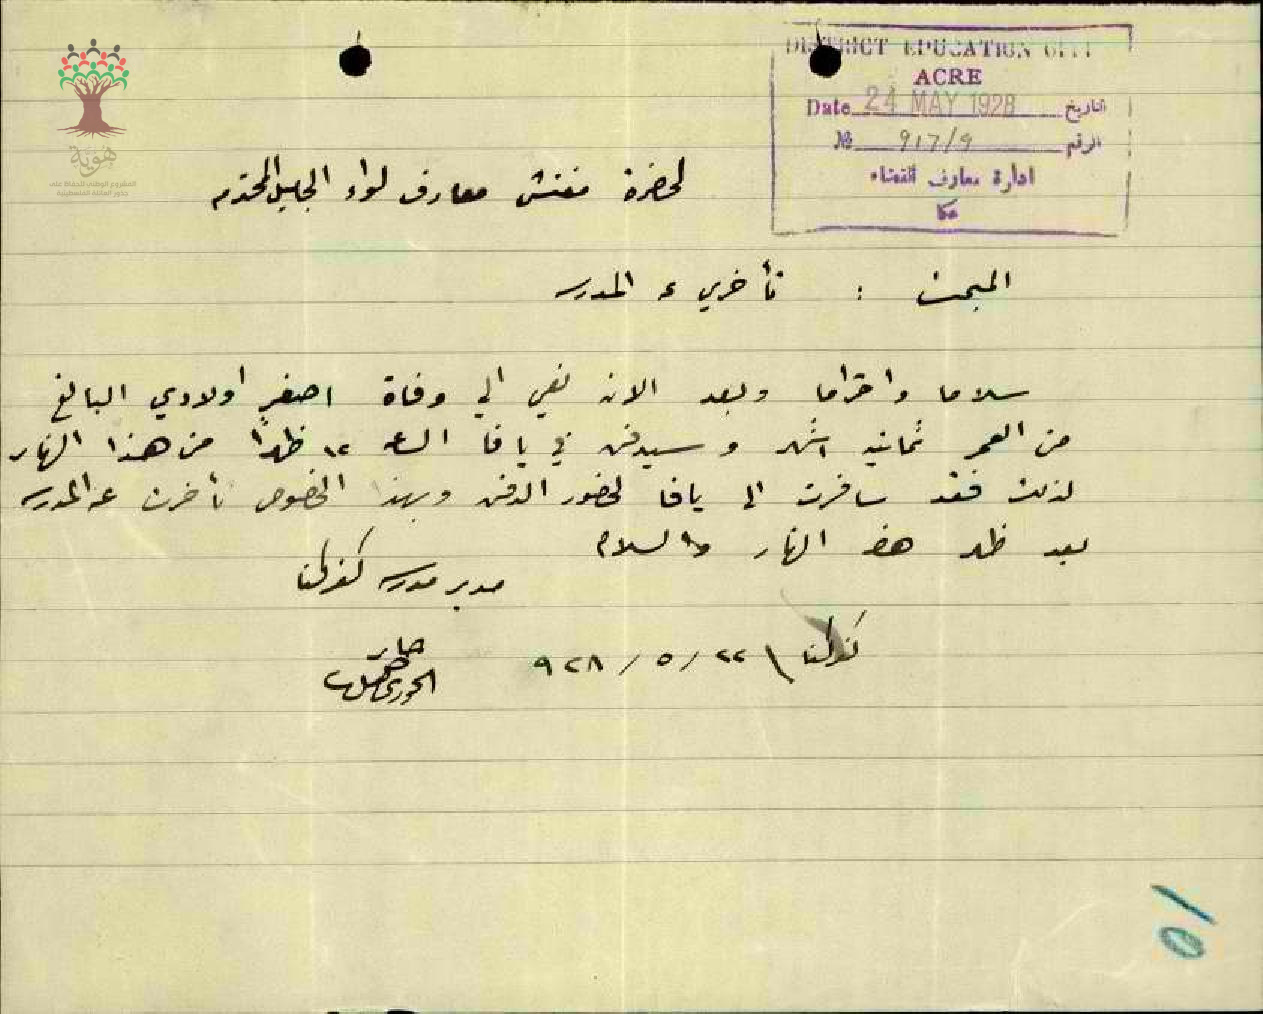 DISTRICT EDUCATION OFFI
ACRE
Date 24 MAY 1928 التاريخ
№ 917/9 الرقم
ادارة معارف القضاء
عكا
هوية
المشروع الوطني للحفاظ على
جذور العائلة الفلسطينية
لحضرة مفتش معارف لواء الجليل المحترم
المبحث : تأخري عن المدرسه
سلاما واحتراما وبعد الان نعي الي وفاة اصغر اولادي البالغ
من العمر ثمانية اشهر وسيدفن في يافا الساعة ١٢ ظهرًا من هذا النهار
لذلك فقد سافرت الى يافا لحضور الدفن وبهذا الخصوص تأخرت عن المدرسه
بعد ظهر هذا النهار والسلام
مدير مدرسه كفرلنا
كفرلنا \ ٢٢ / ٥ / ٩٢٨
الخوري
10